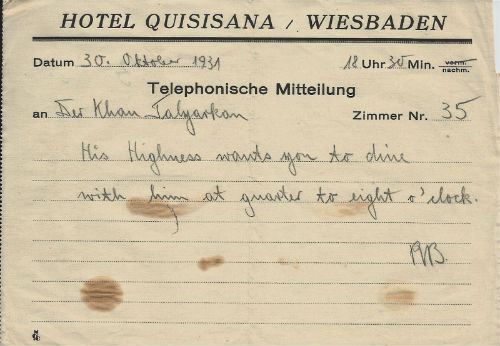 HOTEL QUISISANA / WIESBADEN
Datum 30. Oktober 1931 18 Uhr 30 Min. vorm. nachm.
Telephonische Mitteilung
an Der Khan Talyarkan Zimmer Nr. 35
His Highness wants you to dine
with him at quarter to eight o'clock.